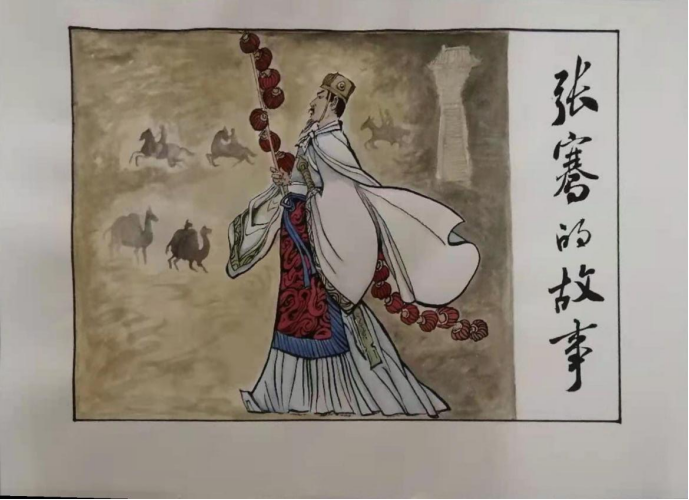 张骞的故事